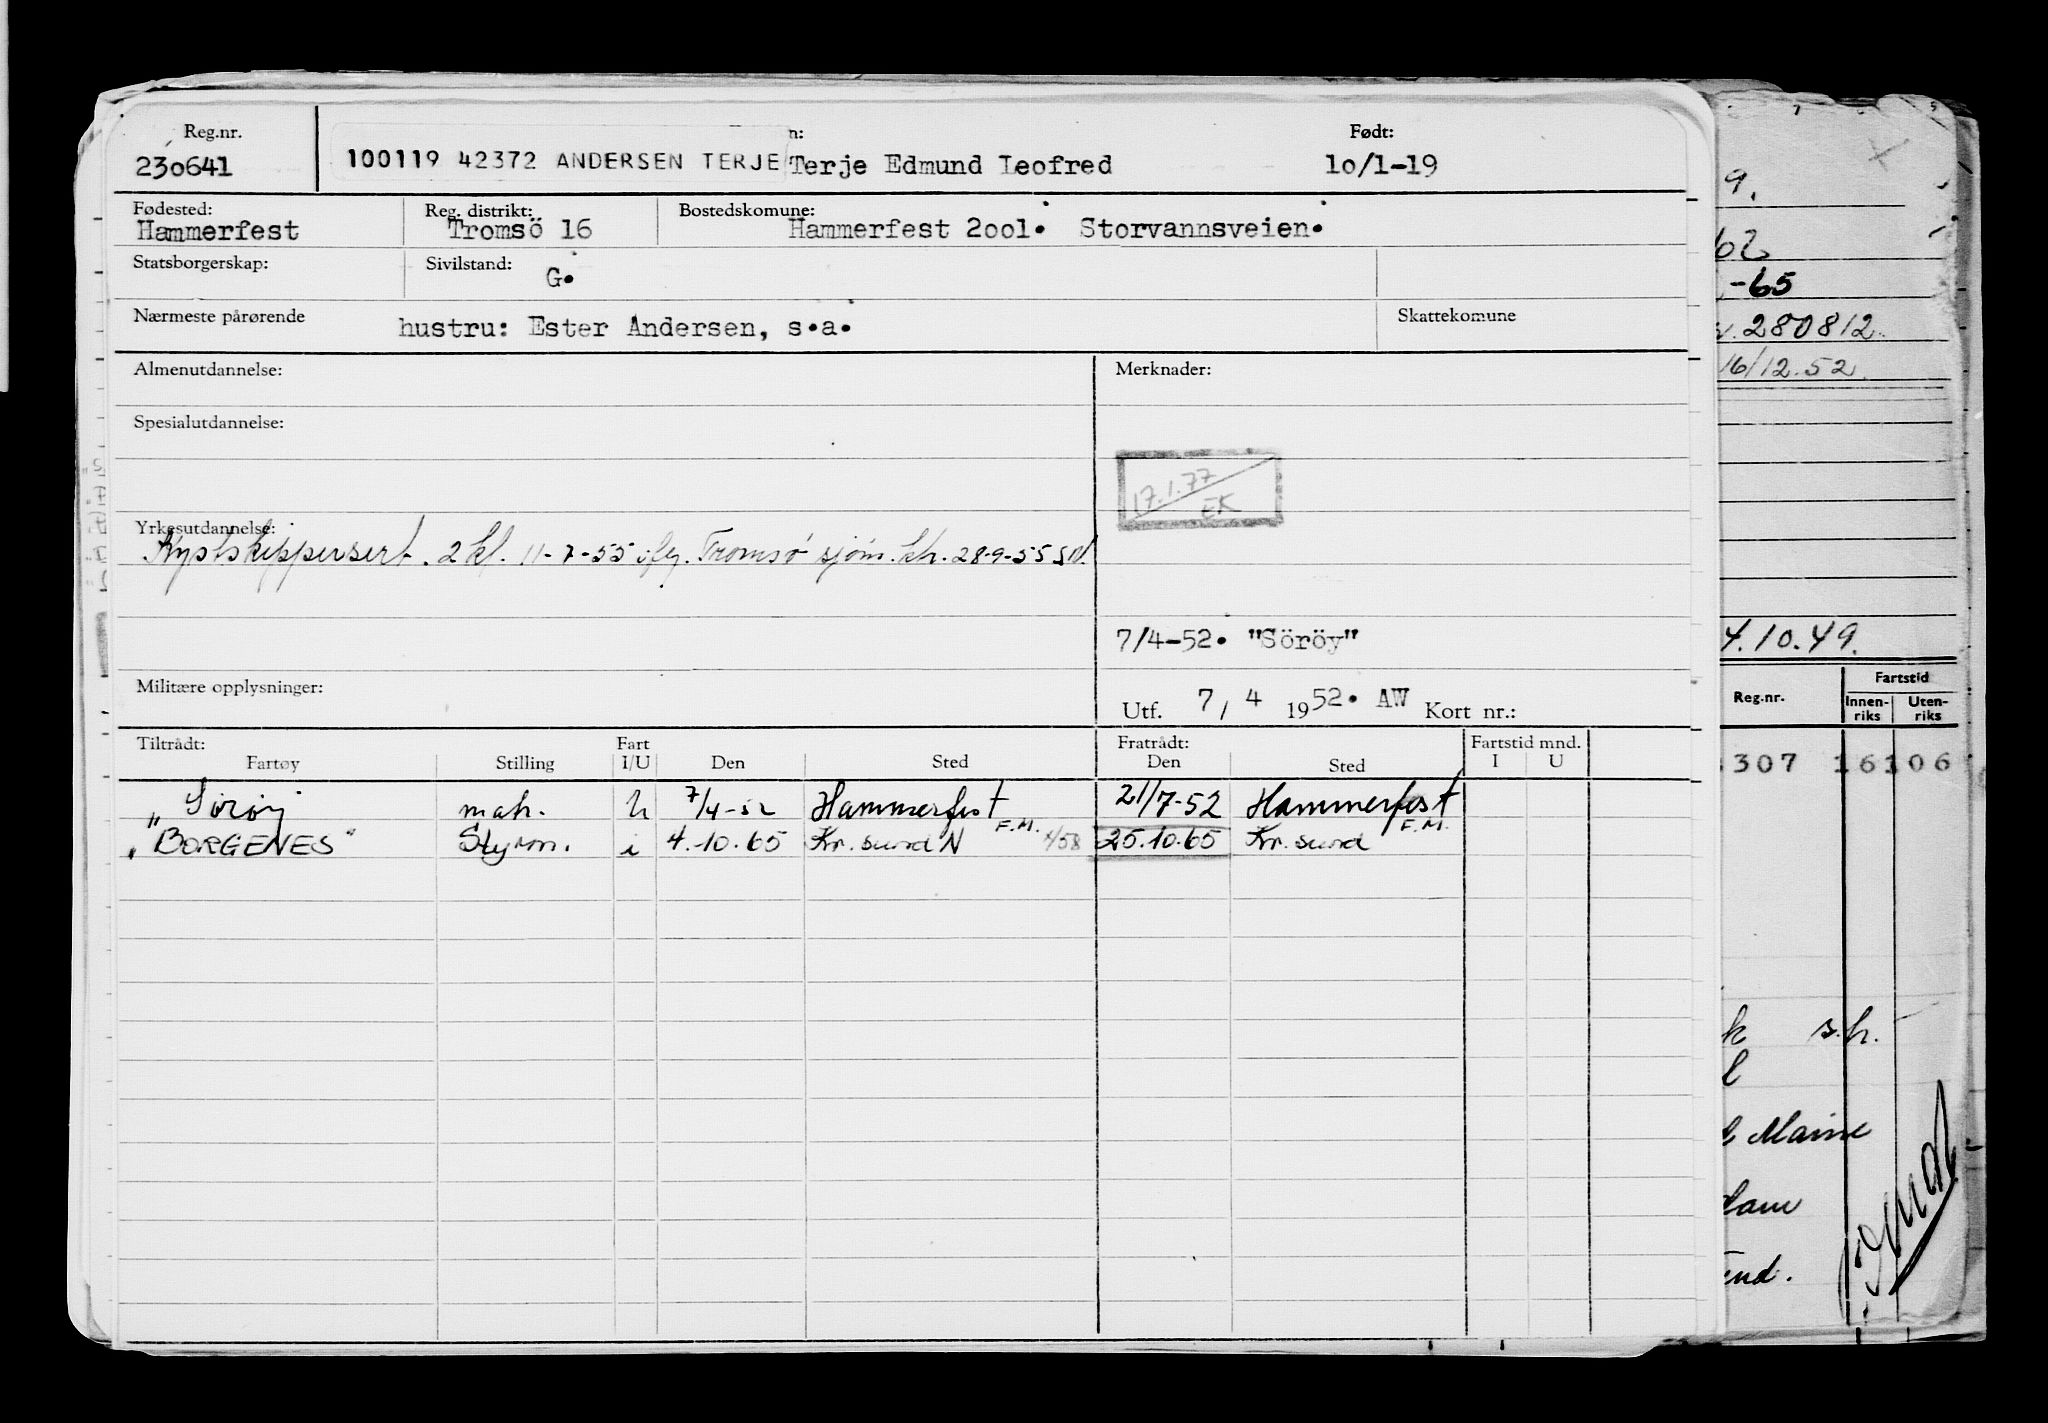 Reg.nr. n: Født:
230641 100119 42372 ANDERSEN TERJE Terje Edmund Leofred 10/1-19
Fødested: Reg. distrikt: Bostedskomune:
Hammerfest Tromsö 16 Hammerfest 2001. Storvannsveien.
Statsborgerskap: Sivilstand: G.
Nærmeste pårørende hustru: Ester Andersen, s.a. Skattekomune
Almenutdannelse: Merknader:
Spesialutdannelse:
17.1.77
EK
Yrkesutdannelse:
Kystskippersert. 2 kl. 11-7-55 Tromsø sjøm. 28-9-55
7/4-52. "Söröy"
Militære opplysninger:
Utf. 7/4 1952. AW Kort nr.:
Tiltrådt: Fart Fratrådt: Fartstid mnd.
Fartøy Stilling I/U Den Sted Den Sted I U
"Sørøy matr. 7/4-52 Hammerfest 21/7-52 Hammerfest
F.M. F.M.
"BORGENES" Styrm. i 4.-10.65 Kr. sund N 4/58 25.10.65 Kr. sund
9.
62
-65
280812
16/12.52
4.10.49.
Reg.nr. Fartstid
Innen-riks Uten-riks
307 16106
s.h.
Maine